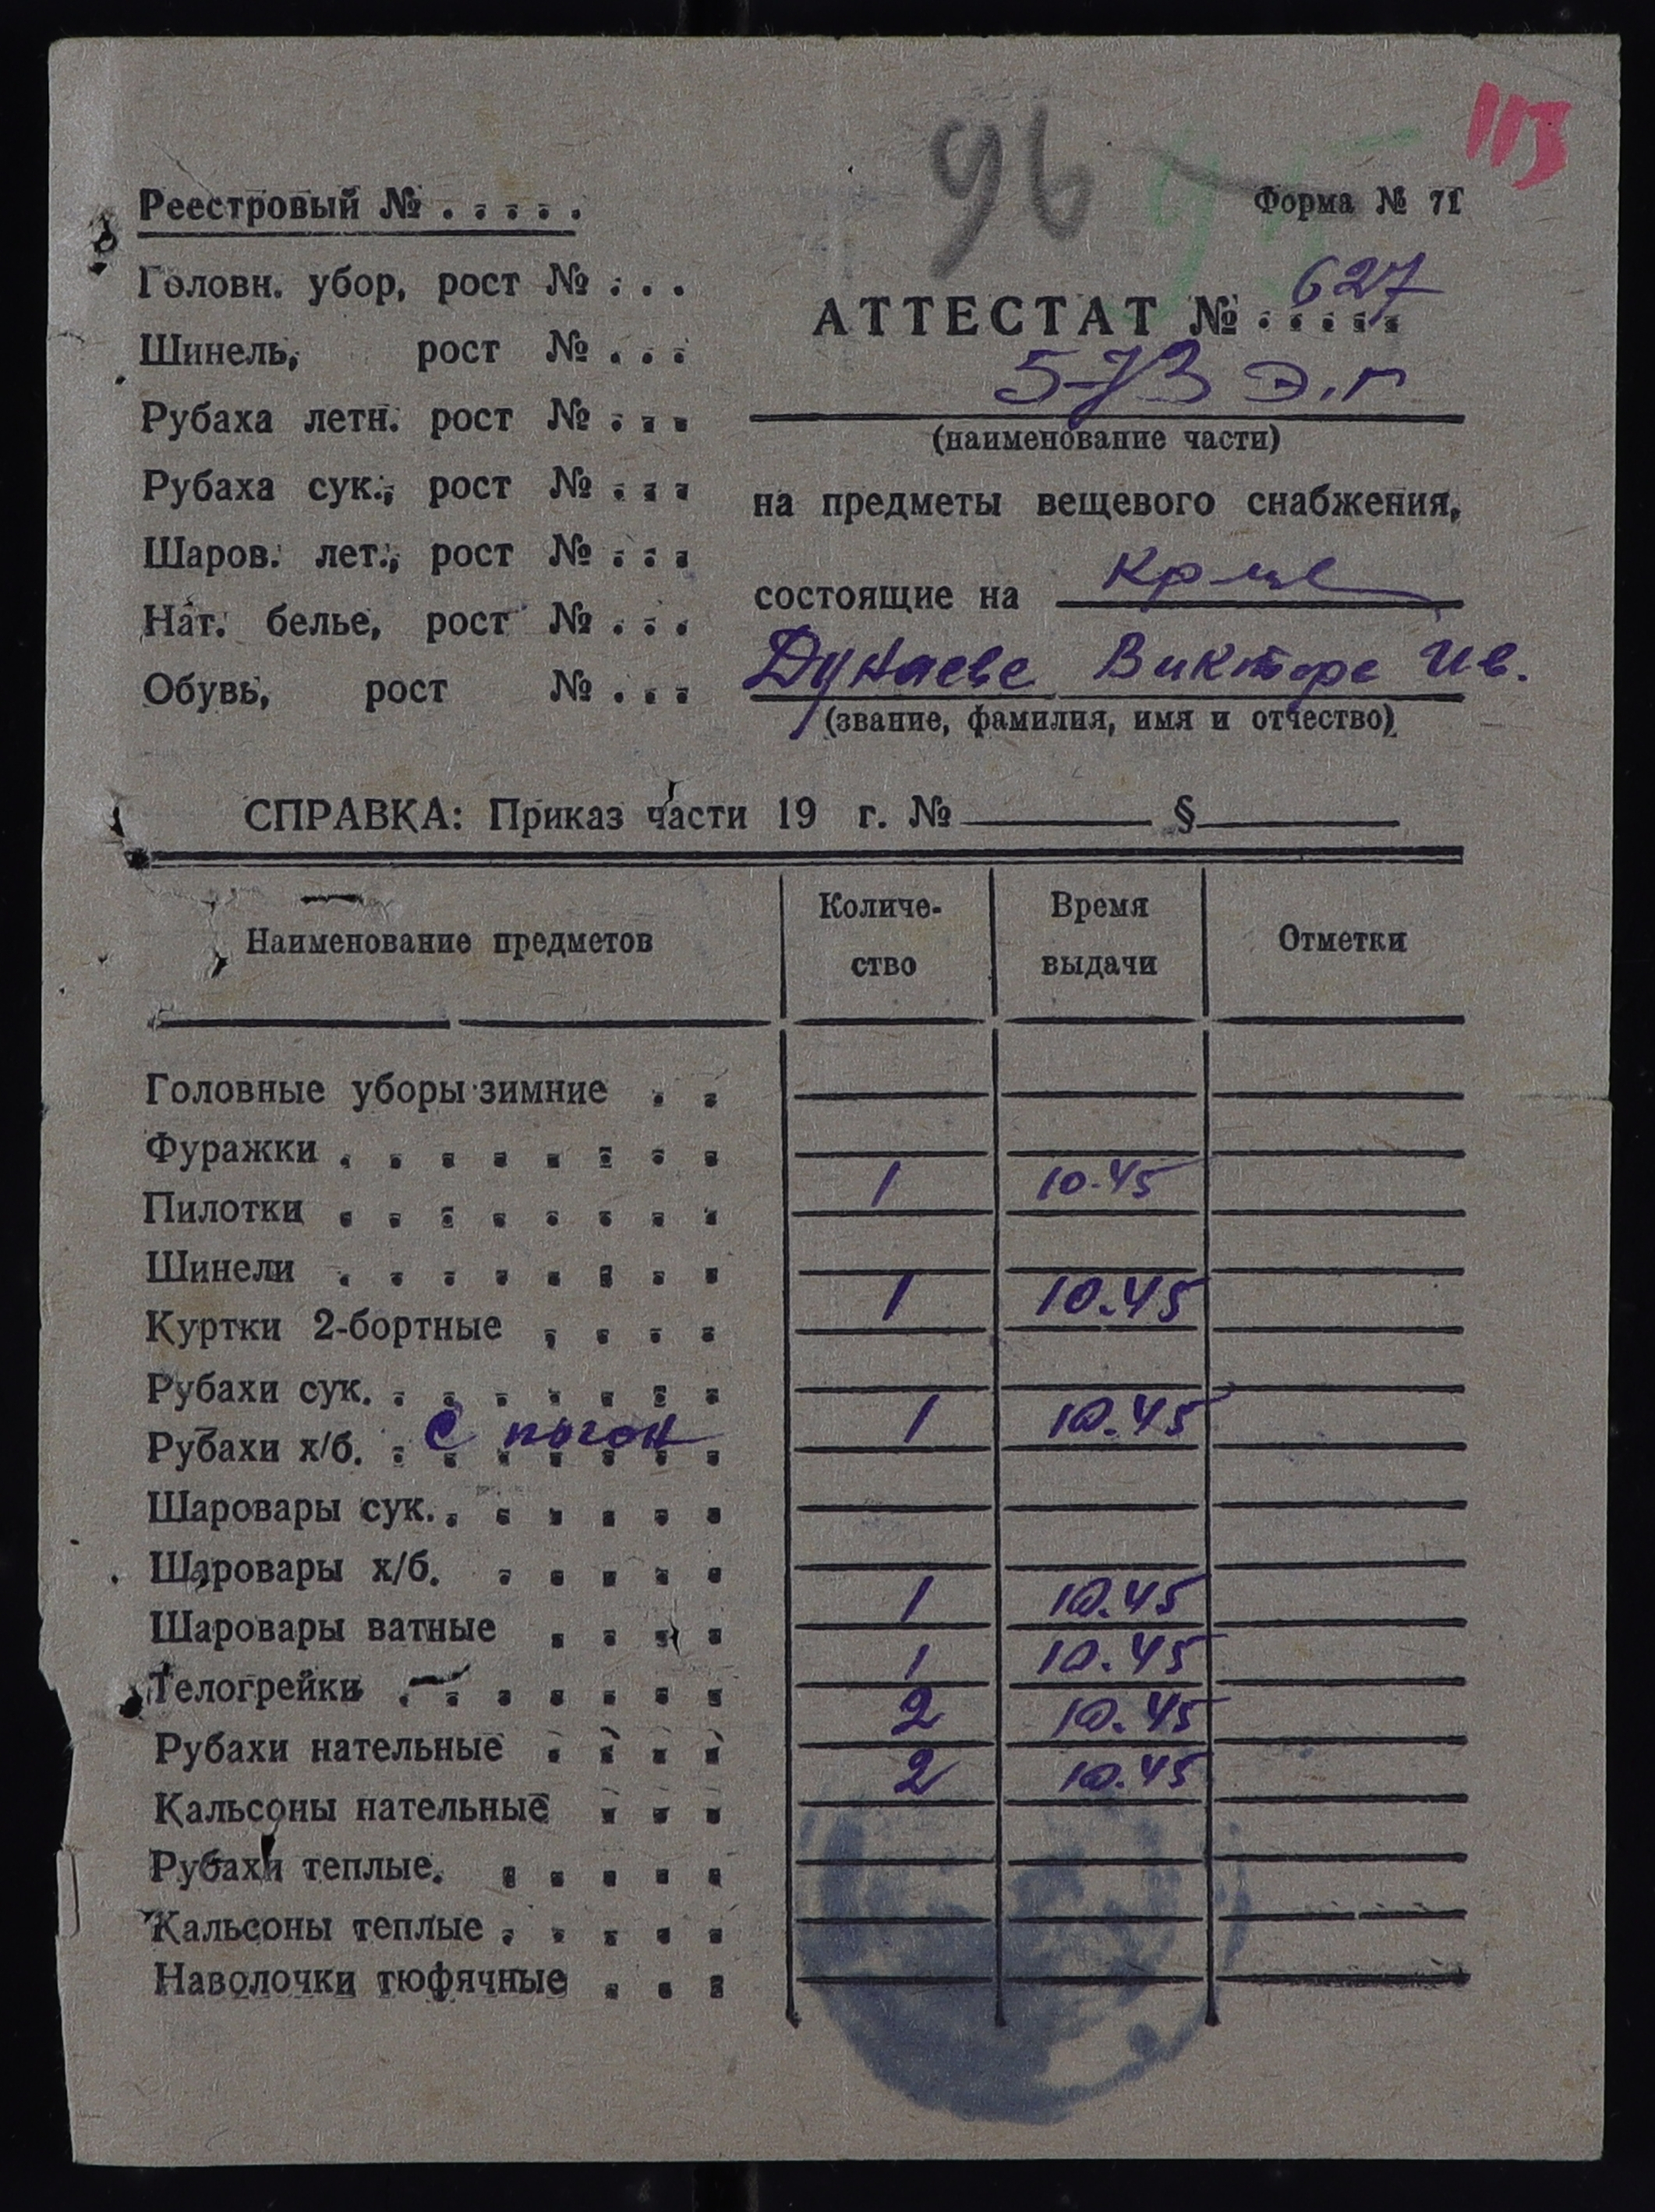 96 95 113
Реестровый № . . . . .
Форма № 71
Головн. убор, рост № . . .
Шинель, рост № . . .
Рубаха летн. рост № . . .
Рубаха сук., рост № . . .
Шаров. лет., рост № . . .
Нат. белье, рост № . . .
Обувь, рост № . . .
АТТЕСТАТ № 627
573 э.г
(наименование части)
на предметы вещевого снабжения,
состоящие на
Дунаева Виктора Ив.
(звание, фамилия, имя и отчество)
СПРАВКА: Приказ части 19 г. № § 
Наименование предметов Количе- Время Отметки
ство выдачи
Головные уборы зимние . .
Фуражки . . . . . . . .
Пилотки . . . . . . . . 1 10.45
Шинели . . . . . . . .
Куртки 2-бортные . . . . 1 10.45
Рубахи сук. . . . . . . .
Рубахи х/б. с погон 1 10.45
Шаровары сук. . . . . .
Шаровары х/б. . . . . .
Шаровары ватные . . . . 1 10.45
Телогрейки . . . . . . . 1 10.45
Рубахи нательные . . . . 2 10.45
Кальсоны нательные . . . 2 10.45
Рубахи теплые. . . . . .
Кальсоны теплые . . . . .
Наволочки тюфячные . . .